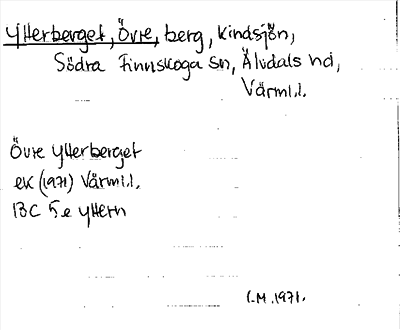 Ytterberget, Övre, berg, Kindsjön,
Södra Finnskoga sn, Älvdals hd,
Värml.l.
Övre Ytterberget
ek (1971) Värml.l.
13C 5e Yttern
L.M. 1971.